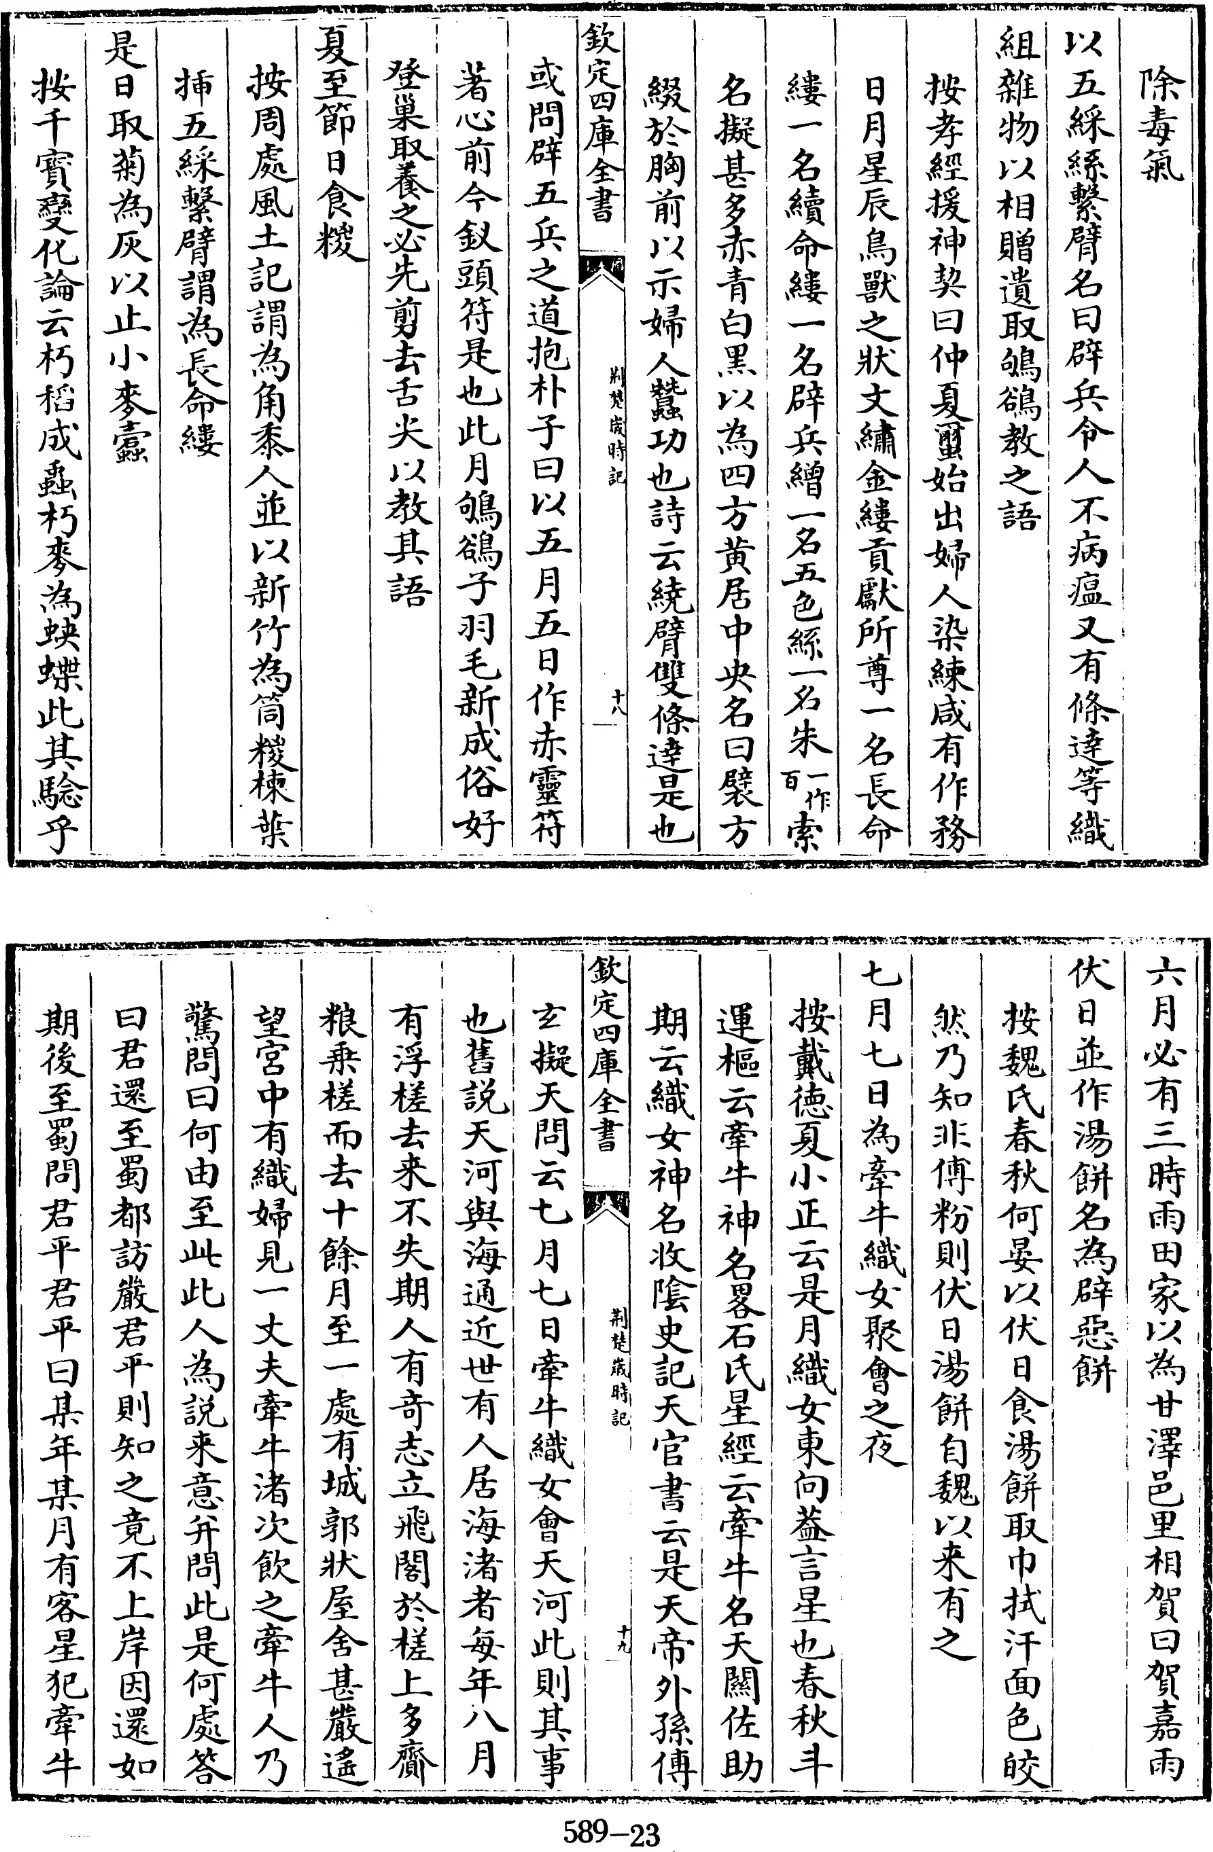 除毒氣
以五綵絲繫臂名曰辟兵令人不病瘟又有條達等織
組雜物以相贈遺取鴝鵒教之語
按孝經援神契曰仲夏蠒始出婦人染練咸有作務
日月星辰鳥獸之狀文繡金縷貢獻所尊一名長命
縷一名續命縷一名辟兵繒一名五色絲一名朱一作百索
名擬甚多赤青白黑以為四方黃居中央名曰襞方
綴於胸前以示婦人蠶功也詩云繞臂雙條達是也
欽定四庫全書
荆楚歲時記
十八
或問辟五兵之道抱朴子曰以五月五日作赤靈符
著心前今釵頭符是也此月鴝鵒子羽毛新成俗好
登巢取養之必先剪去舌尖以教其語
夏至節日食糉
按周處風土記謂為角黍人並以新竹為筒糉楝葉
揷五綵繫臂謂為長命縷
是日取菊為灰以止小麥蠹
按干寶變化論云朽稻成蟲朽麥為蛺蝶此其騐乎
六月必有三時雨田家以為甘澤邑里相賀曰賀嘉雨
伏日並作湯餅名為辟惡餅
按魏氏春秋何晏以伏日食湯餅取巾拭汗面色皎
然乃知非傅粉則伏日湯餅自魏以來有之
七月七日為牽牛織女聚會之夜
按戴德夏小正云是月織女東向葢言星也春秋斗
運樞云牽牛神名畧石氏星經云牽牛名天關佐助
期云織女神名收陰史記天官書云是天帝外孫傅
欽定四庫全書
荆楚歲時記
十九
玄擬天問云七月七日牽牛織女會天河此則其事
也舊説天河與海通近世有人居海渚者每年八月
有浮槎去來不失期人有奇志立飛閣於槎上多齎
粮乘槎而去十餘月至一處有城郭狀屋舍甚嚴遙
望宮中有織婦見一丈夫牽牛渚次飲之牽牛人乃
驚問曰何由至此此人為説來意并問此是何處答
曰君還至蜀都訪嚴君平則知之竟不上岸因還如
期後至蜀問君平君平曰某年某月有客星犯牽牛
589-23